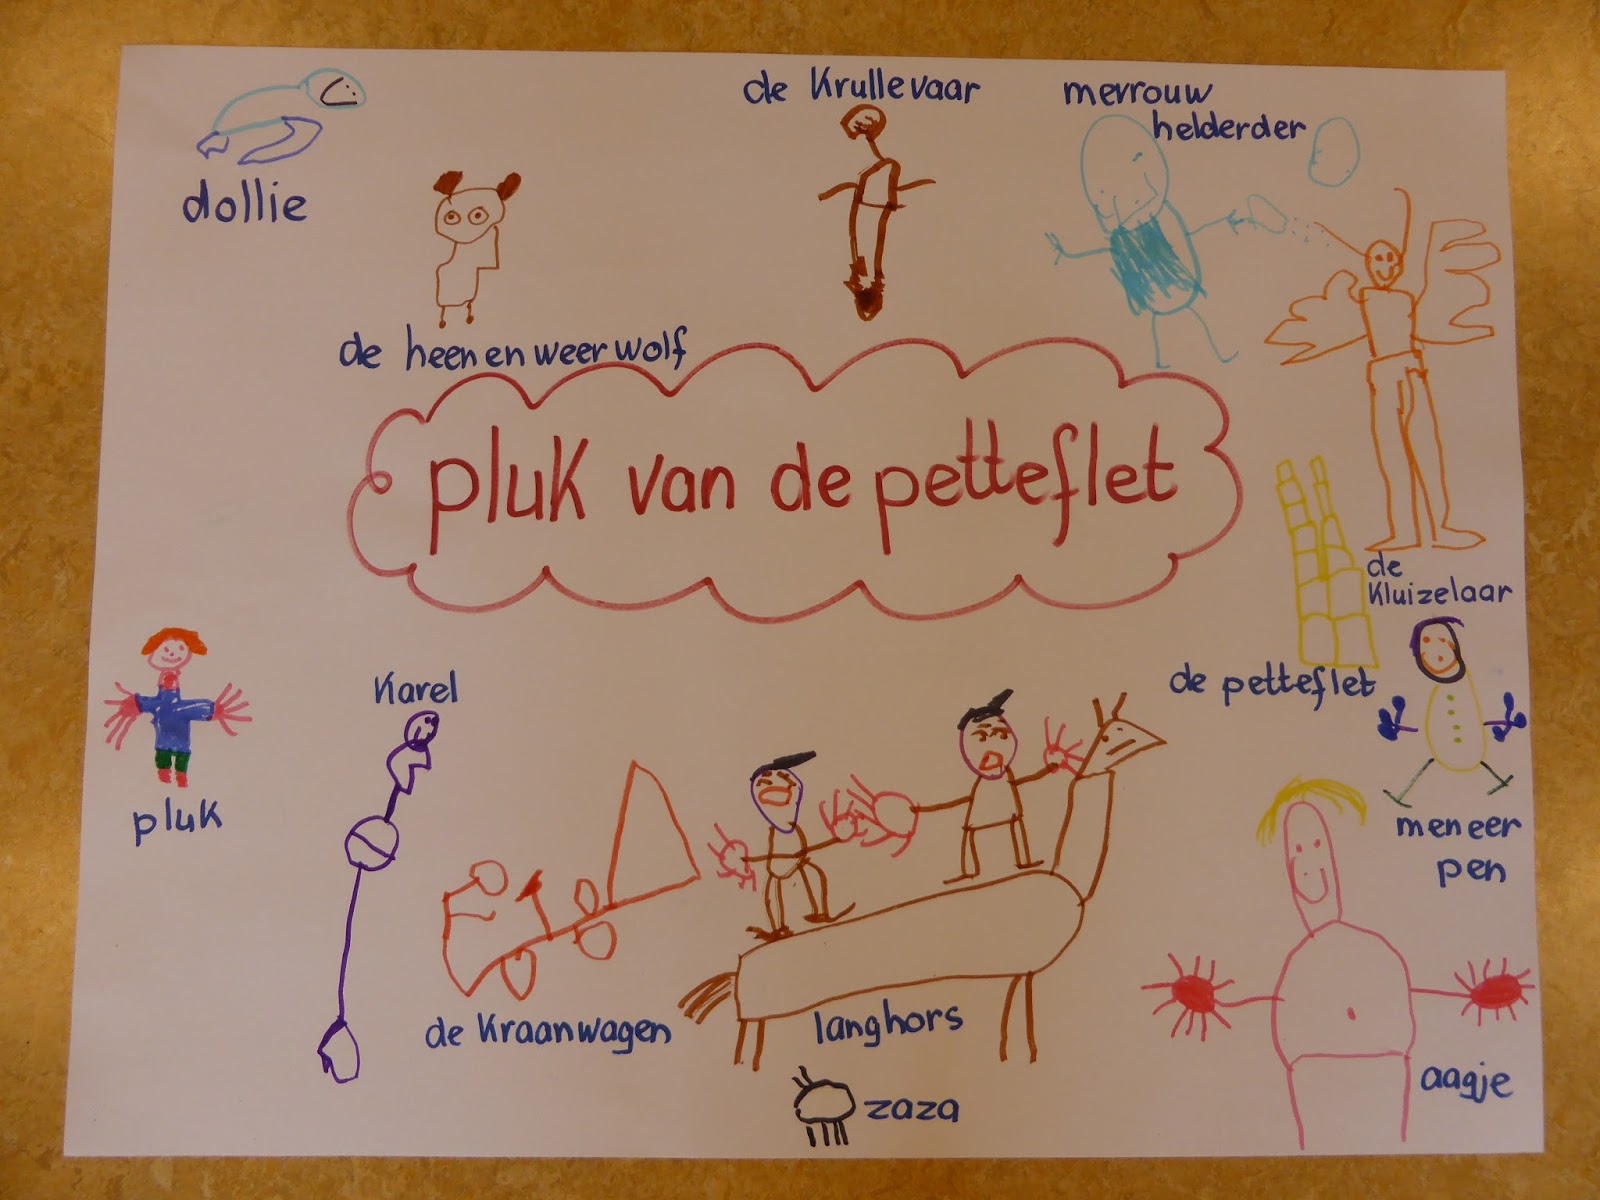 de Krullevaar
mevrouw
helderder
dollie
de heen en weer wolf
pluk van de petteflet
de
Kluizelaar
de petteflet
Karel
pluk
meneer
pen
de Kraanwagen
langhors
aagje
zaza